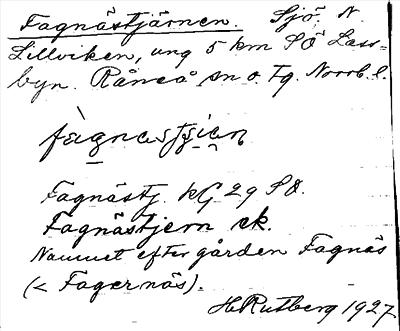 Fagnästjärnen. Sjö. N.
Lillviken, ung 5 km SÖ Lass-
byn. Råneå sn o. Tg. Norrb. l.
Fagnästj. kG 29 SO.
Fagnästjern ek.
Namnet efter gården Fagnäs
(< Fagernäs).
H Rutberg 1927